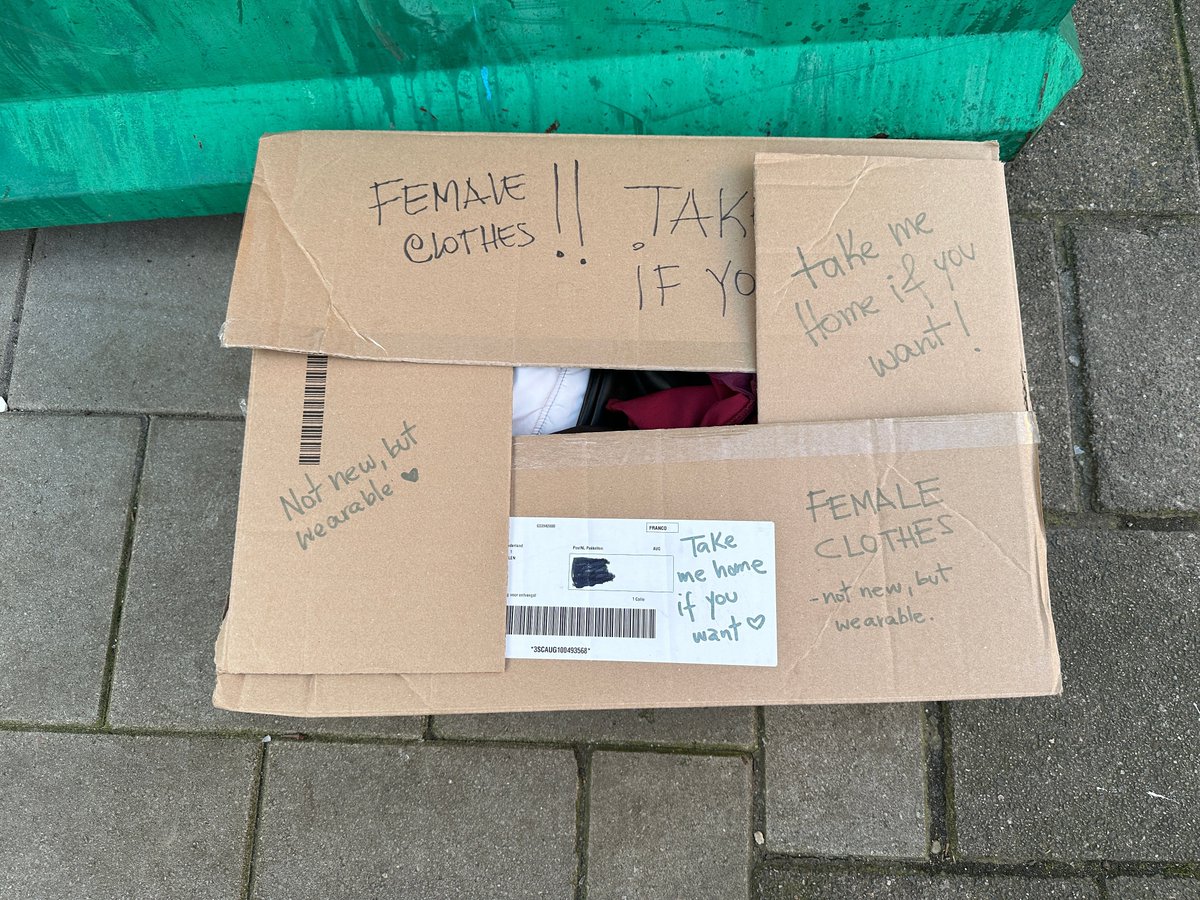 FEMALE
CLOTHES !!
TAK
IF YO
take me
Home if you
want!
Not new, but
wearable ♥
FRANCO
PostNL Pakketten
AVG
1 Colo
*3SCAUG100493568*
Take
me home
if you
want ♡
FEMALE
CLOTHES
-not new, but
wearable.